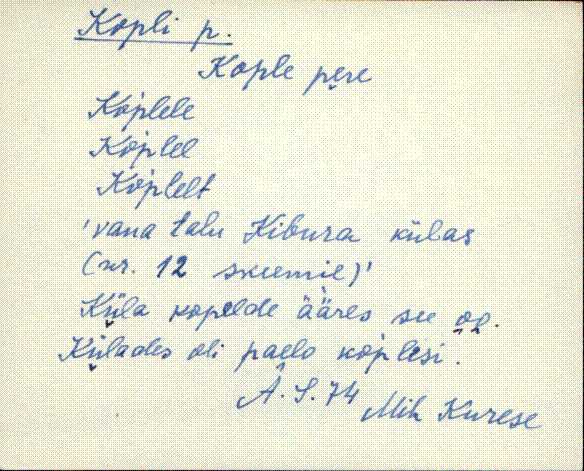 Kopli p.
Kople pere
Koplele
Koplel
Koplelt
'vana talu Kibura külas
(nr. 12 skeemil)'
Küla kopelde ääres see oo.
Külades oli paelo koplesi.
A. S. 74 Mih Kurese